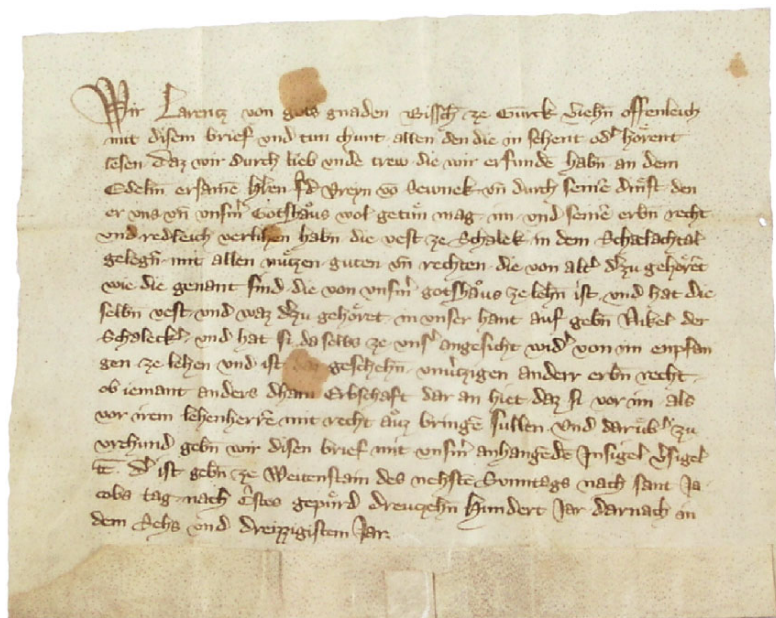 Wir Larentz von gots gnaden Bissch ze Gurck Viehn offenleich
mit disem brief vnd tun chunt allen den die in sehent od hörent
lesen daz wir durch lieb vnde trew die wir erfunde habn an dem
Edeln ersame hern vn durch seine dinst den
er vns vn vnserm Gotshaus wol getun mag im vnd seine erbn recht
vnd redleich verlihen habn die vest ze Schalek in dem Schalachtal
gelegn mit allen nutzen guten vn rechten die von alt dzu gehöret
wie die genant sind die von vnserm gotshaus ze lehn ist vnd hat die
selbn vest vnd waz dzu gehöret in vnser hant auf gebn Nikel der
Schaleck vnd hat si da selbs ze vnser angesicht wid von im enpfan
gen ze lehen vnd ist daz geschehn vnutzigen anderr erbn recht
ob iemant anders dhain Erbschaft dar an hiet daz si vor im als
vor irem lehenherre mit recht auz bringe sullen Vnd darub zu
vrchund gebn wir disen brief mit vnserm anhangede Insigel vsigel
t. D ist gebn ze Weitenstain des nehste Svnntags nach sant Ja
cobs tag nach Cstes gepurd dreuzehn Hundert Jar darnach in
dem Sehs vnd dreizzigistem Jar.